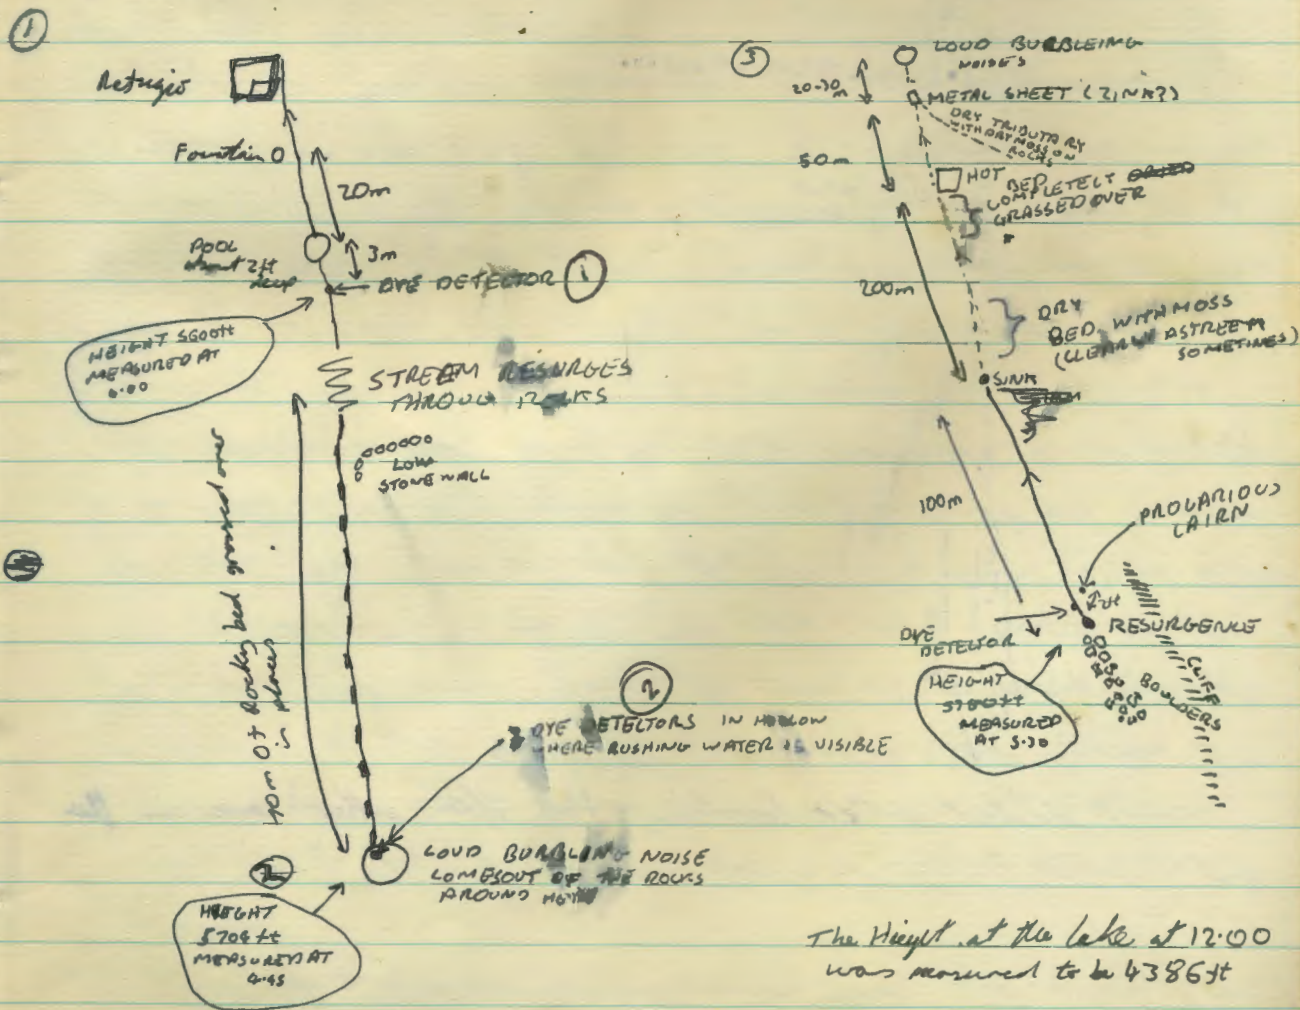 1
Refugio
Fountain
20m
POOL
about 2ft
deep
3m
DYE DETECTOR 1
HEIGHT 5600ft
MEASURED AT
6.00
STREAM RESURGES
THROUGH ROCKS
LOW
STONE WALL
40m of Rocky bed grassed over
in places
2
DYE DETECTORS IN HOLLOW
WHERE RUSHING WATER IS VISIBLE
LOUD BURBLING NOISE
COMES OUT OF THE ROCKS
AROUND
2
HEIGHT
5704 ft
MEASURED AT
4.45
3
LOUD BURBLEING
NOISES
20-30
m
METAL SHEET (ZINK?)
DRY TRIBUTARY
WITH DRY MOSS ON
ROCKS
50m
HOT
BED
COMPLETELY
GRASSED OVER
200m
DRY
BED, WITH MOSS
(CLEARLY A STREEM
SOMETIMES)
SINK
100m
PROCARIOUS
CAIRN
2ft
RESURGENCE
DYE
DETECTOR
CLIFF
BOULDERS
HEIGHT
5700ft
MEASURED
AT 5.30
The Hieght at the lake at 12.00
was measured to be 4386ft